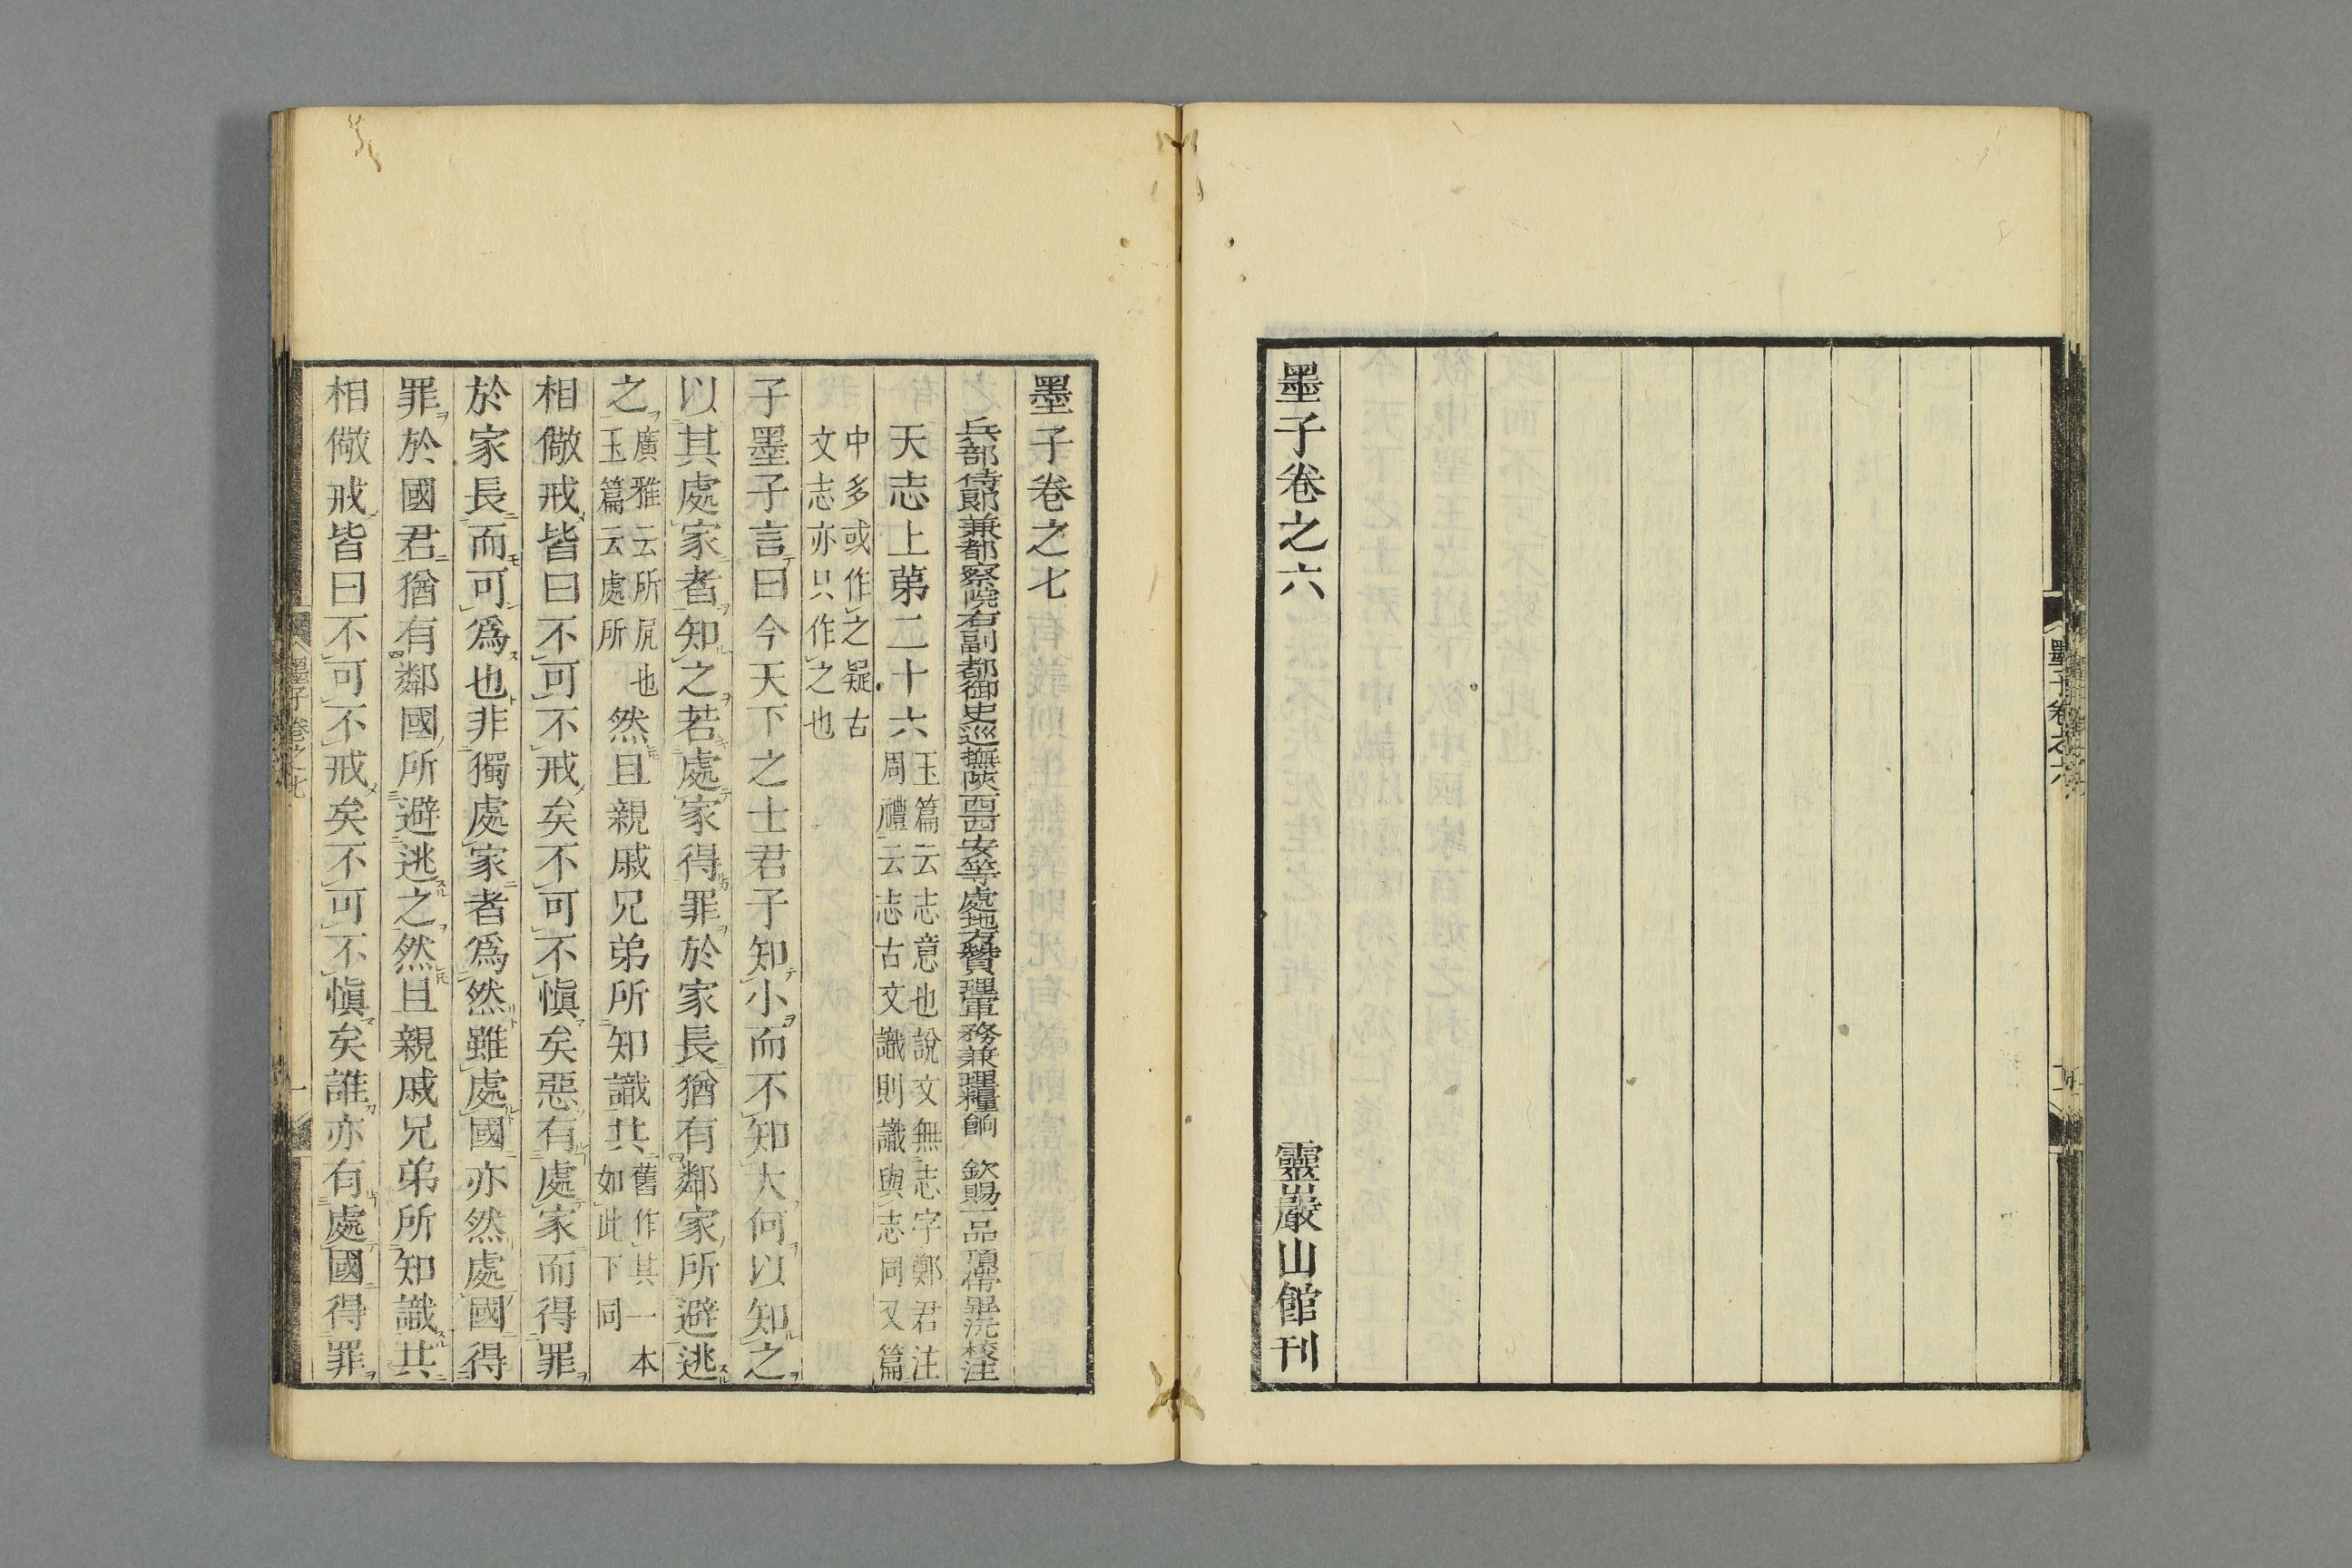 墨子卷之六
靈巖山館刊
墨子卷之六
墨子卷之七
兵部侍郎兼都察院右副都御史巡撫陝西西安等處地方贊理軍務兼理糧餉 欽賜一品頂帶畢沅校注
天志上第二十六
玉篇云志意也說文無志字鄭君注
周禮云志古文識則識與志同又篇
中多或作之疑古
文志亦只作之也
子墨子言曰今天下之士君子知小而不知大何以知之
以其處家者知之若處家得罪於家長猶有鄰家所避逃
之
廣雅云所凥也
玉篇云處所
然且親戚兄弟所知識共
舊作其一本
如此下同
相儆戒皆曰不可不戒矣不可不愼矣惡有處家而得罪
於家長而可爲也非獨處家者爲然雖處國亦然處國得
罪於國君猶有鄰國所避逃之然且親戚兄弟所知識共
相儆戒皆曰不可不戒矣不可不愼矣誰亦有處國得罪
墨子卷之七
一